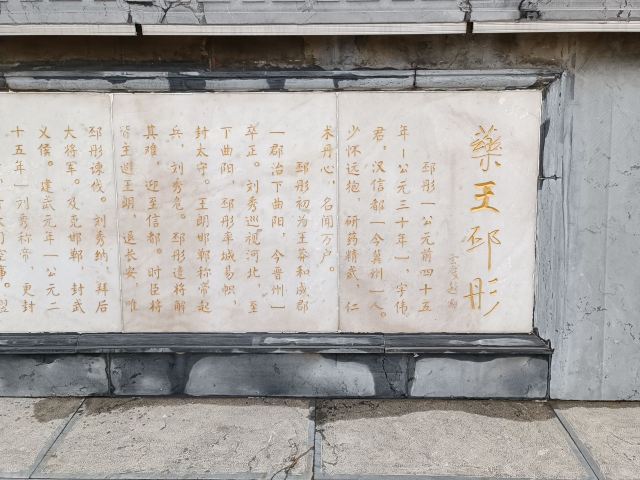 藥王邳彤
邳彤(公元前四十五
年-公元三十年),字伟
君,汉信都(今冀州)人。
少怀远抱,研药精武,仁
术丹心,名闻万户。
邳彤初为王莽和成郡
(郡治下曲阳,今晋州)
卒正。刘秀巡视河北,至
下曲阳,邳彤举城易帜,
封太守。王朗邯郸称帝起
兵,刘秀危。邳彤遣将解
其难,迎至信都。时臣将
皆主避王朗,退长安,惟
邳彤谏伐。刘秀纳,拜后
大将军。及克邯郸,封武
义侯。建武元年(公元二
十五年)刘秀称帝,更封
空事。翌